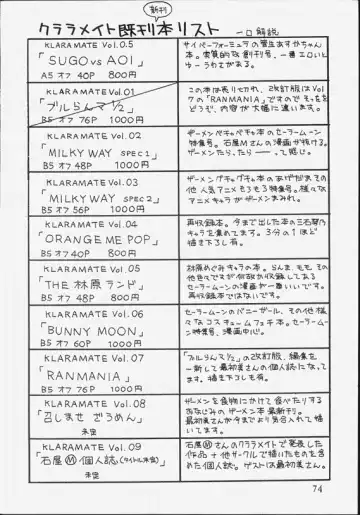 新刊
クララメイト既刊本リスト 一口解説
KLARAMATE Vol.0.5
「SUGO vs AOI」
A5 オフ 40P 800円
サイバーフォーミュラの菅生あすかちゃん
本。実質的改創刊号、一番エロいし
KLARAMATE Vol.01
「プルらんマ1/2」
B5 オフ 76P 1000円
この本は売り切れ、改訂版はVol
7の「RANMANIA」ですのでそっちを
どうぞ、内容が大幅に違います。
KLARAMATE Vol.02
「MILKY WAY SPEC1」
B5 オフ 48P 1000円
ザーメンべちゃべちゃ本のセーラームーン
特集号。石屋Mさんの漫画が抜ける。
ザーメンたら、たらーーって感じ。
KLARAMATE Vol.03
「MILKY WAY SPEC2」
B5 オフ 56P 1000円
ザーメングチョグチョ本のあげだまその
他人気アニメもろもろ特集号。様々な
アニメキャラがザーメンまみれ。
KLARAMATE Vol.04
「ORANGE ME POP」
B5 オフ 40P 800円
再収録本。今まで出した本の三石琴乃
キャラを集めてます。3分の1ほど
描き下ろし有。
KLARAMATE Vol.05
「THE 林原ランド」
B5 オフ 48P 1000円
林原めぐみキャラの本。らんま、ももその
セーラームーンの漫画が一番いいです。
再収録本ではないです。
KLARAMATE Vol.06
「BUNNY MOON」
B5 オフ 60P 1000円
セーラームーンのバニーガール、その他様
々なコスチュームフェチ本。セーラームー
ン特集号、漫画中心。
KLARAMATE Vol.07
「RANMANIA」
B5 オフ 76P 1000円
「プルらんマ1/2」の改訂版、編集を
一新して最初美さんの個人誌になっ
てます。描き下ろしも有。
KLARAMATE Vol.08
「召しませ ざうめん」
未定
ザーメンを食物にかけて食べたりする
おなじみのザーメン本最新刊。
最初美さんが今までより気合入れて描
いてます。
KLARAMATE Vol.09
「石屋Ⓜ個人誌(タイトル未定)」
未定
石屋Ⓜさんのクララメイトで発表した
作品+他サークルで描いたものを含
めた個人誌。ゲストは最初美さん。
74